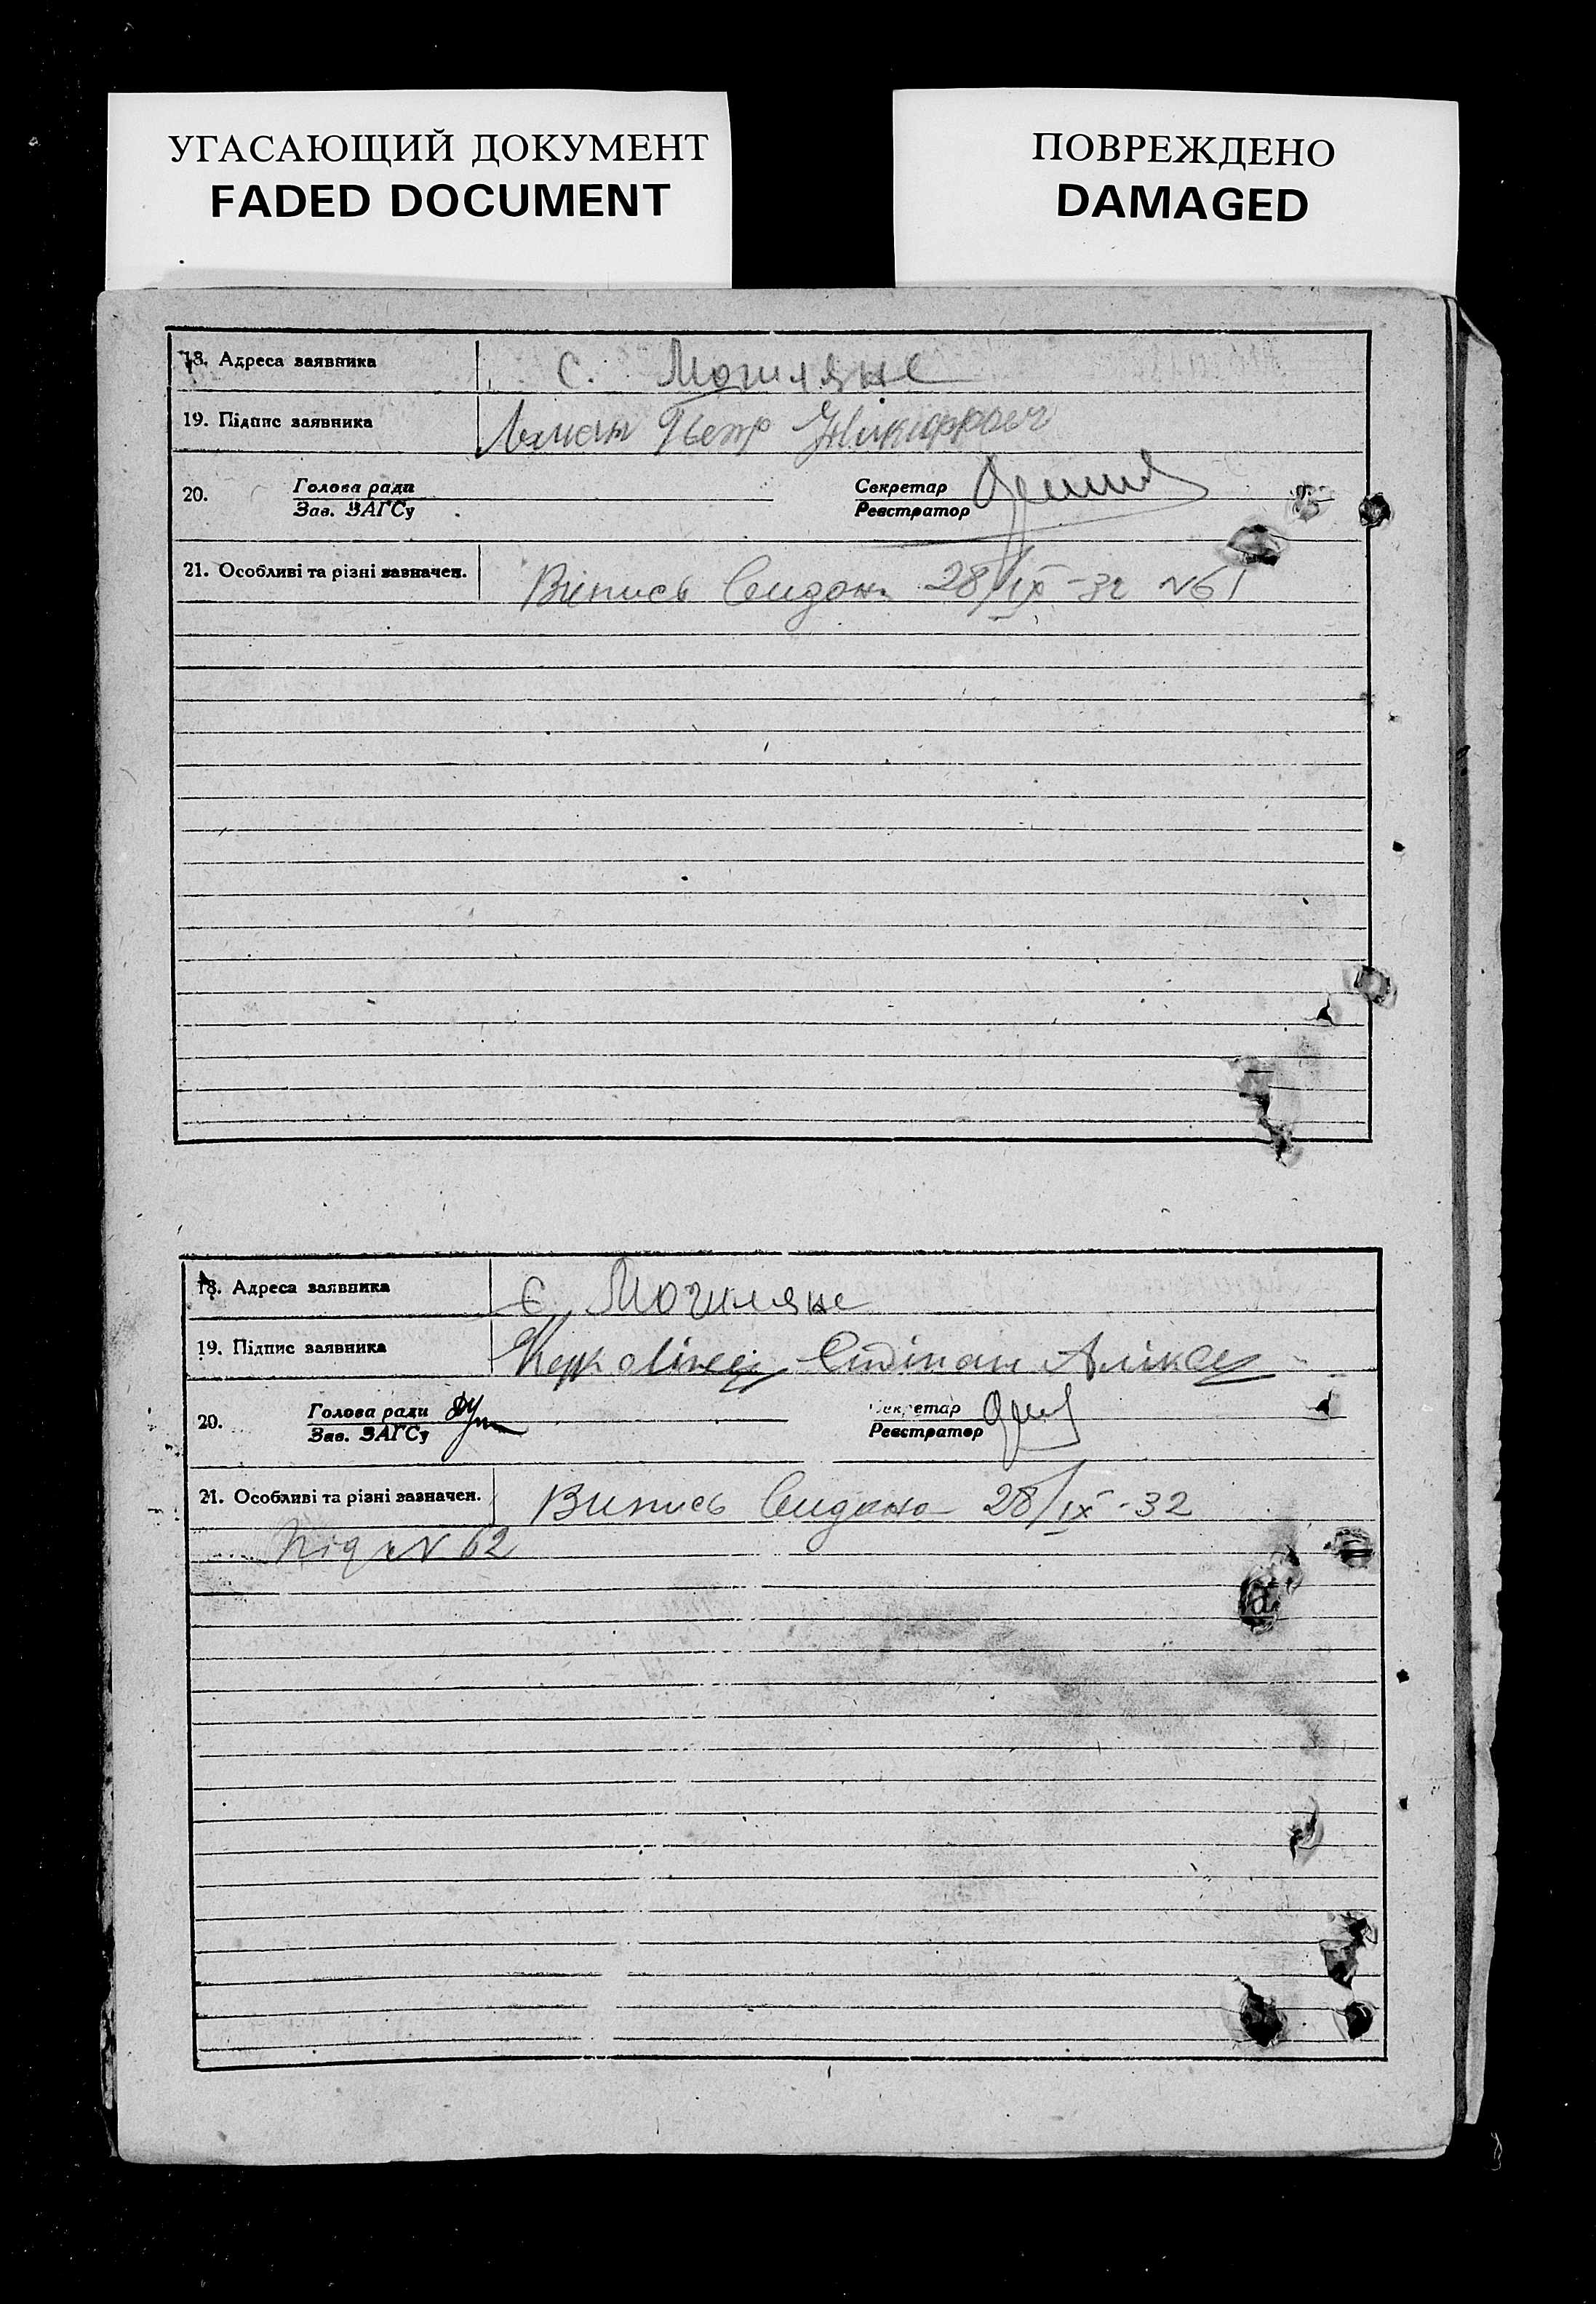 УГАСАЮЩИЙ ДОКУМЕНТ
FADED DOCUMENT
ПОВРЕЖДЕНО
DAMAGED
18. Адреса заявника с. Могиляне
19. Підпис заявника Петр
20. Голова ради
Зав. ЗАГСу
Секретар
Реєстратор
21. Особливі та різні зазначен. Випись видана 28/IX-32 №61
18. Адреса заявника с. Могиляне
19. Підпис заявника
20. Голова ради
Зав. ЗАГСу
Секретар
Реєстратор
21. Особливі та різні зазначен. Випись видана 28/IX-32
під № 62